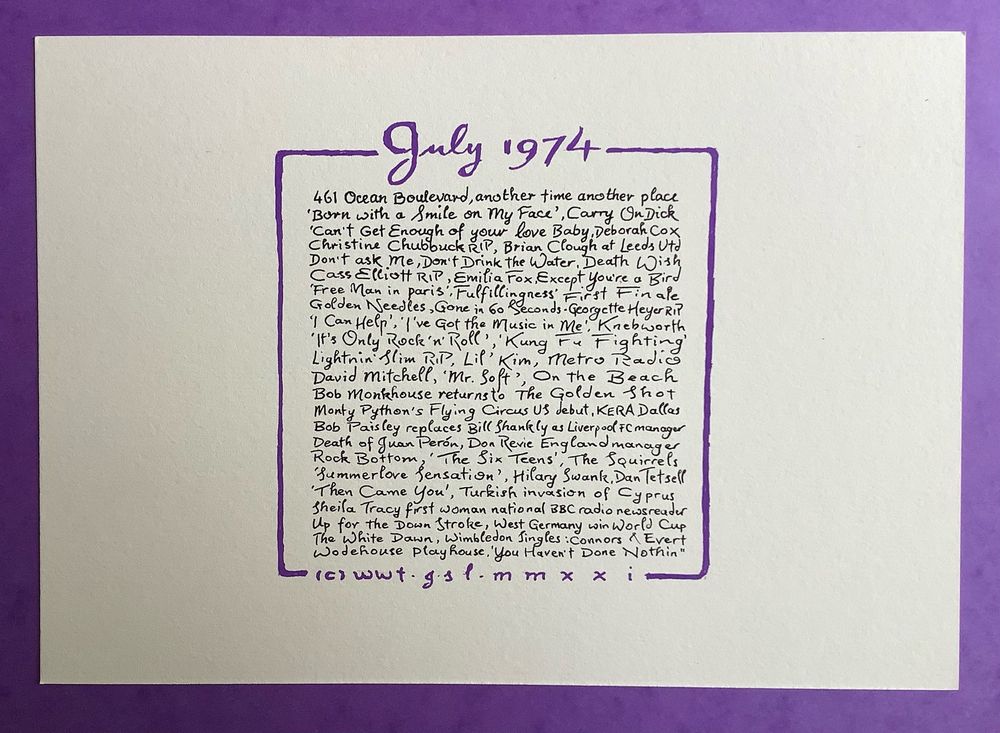 July 1974
461 Ocean Boulevard, another time another place
'Born with a Smile on My Face', Carry On Dick
'Can't Get Enough of your love Baby, Deborah Cox
Christine Chubbuck RIP, Brian Clough at Leeds Utd
Don't ask Me, Don't Drink the Water, Death Wish
Cass Elliott RIP, Emilia Fox, Except You're a Bird
'Free Man in paris', Fulfillingness' First Finale
Golden Needles, Gone in 60 Seconds - Georgette Heyer RIP
'I Can Help', 'I've Got the Music in Me', Knebworth
'It's Only Rock 'n' Roll', 'Kung Fu Fighting'
Lightnin' Slim RIP, Lil' Kim, Metro Radio
David Mitchell, 'Mr. Soft', On the Beach
Bob Monkhouse returns to The Golden Shot
Monty Python's Flying Circus US debut, KERA Dallas
Bob Paisley replaces Bill Shankly as Liverpool FC manager
Death of Juan Perón, Don Revie England manager
Rock Bottom, 'The Six Teens', The Squirrels
'Summerlove Sensation', Hilary Swank, Dan Tetsell
'Then Came You', Turkish invasion of Cyprus
Sheila Tracy first woman national BBC radio newsreader
Up for the Down Stroke, West Germany win World Cup
The White Dawn, Wimbledon Singles: Connors ^ Evert
Wodehouse Playhouse, 'You Haven't Done Nothin''
(c) wwt.gsl.mmxxi